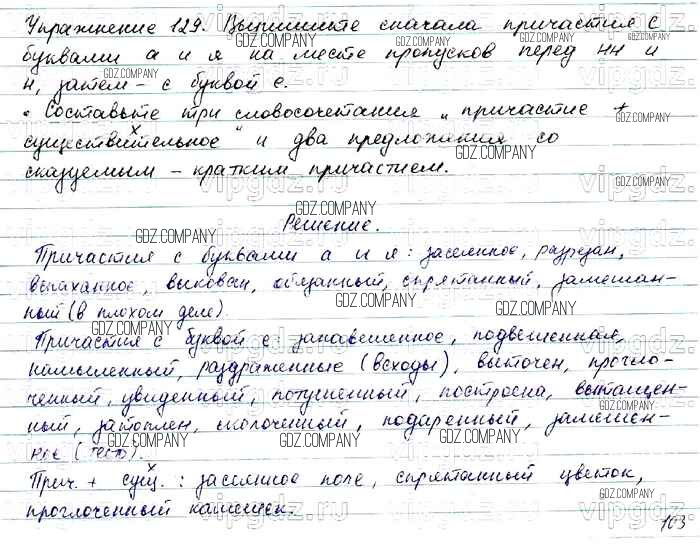 Упражнение 129. Выпишите сначала причастия с
буквами а и я на месте пропусков перед нн и
н, затем – с буквой е.
• Составьте три словосочетания „причастие +
существительное" и два предложения со
сказуемым – кратким причастием.
Решение.
Причастия с буквами а и я: засеянное, разрезан,
вспаханное, выкован, обязанный, спрятанный, замешан-
ный (в плохом деле).
Причастия с буквой е занавешенное, подвешенная,
намыленный, раздраженные (всходы), выточен, прогло-
ченный, увиденный, потушенный, построена, вытащен-
ный, затоплен, сколоченный, подаренный, замешен-
ное (тесто).
Прич. + сущ. : засеянное поле, спрятанный цветок,
проглоченный камешек.
103
GDZ.COMPANY
vipgdz.ru